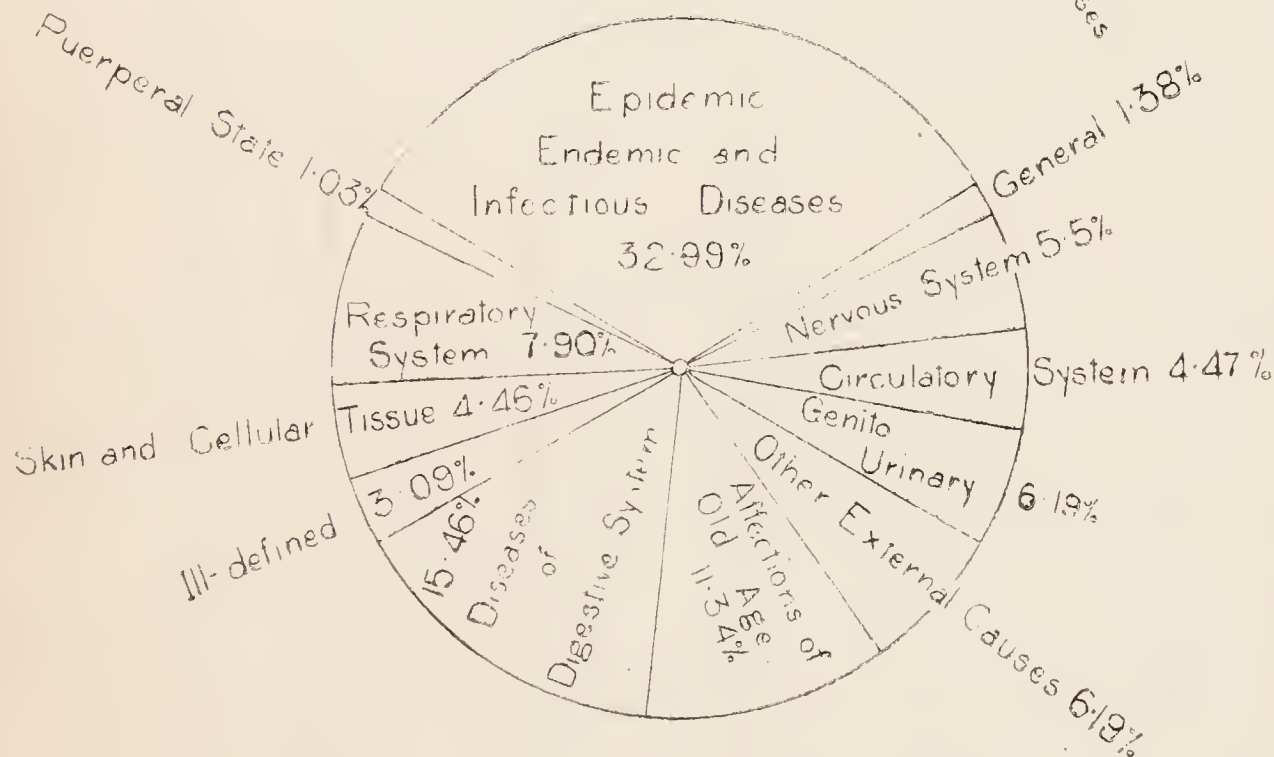 Puerperal State 1·03%
Epidemic
Endemic and
Infectious Diseases
32·99%
General 1·38%
Nervous System 5·5%
Circulatory System 4·47%
Genito
Urinary 6·19%
Other External Causes 6·19%
Affections of
Old Age
11·34%
Diseases
of
Digestive System
15·46%
Ill-defined 3·09%
Skin and Cellular Tissue 4·46%
Respiratory
System 7·90%